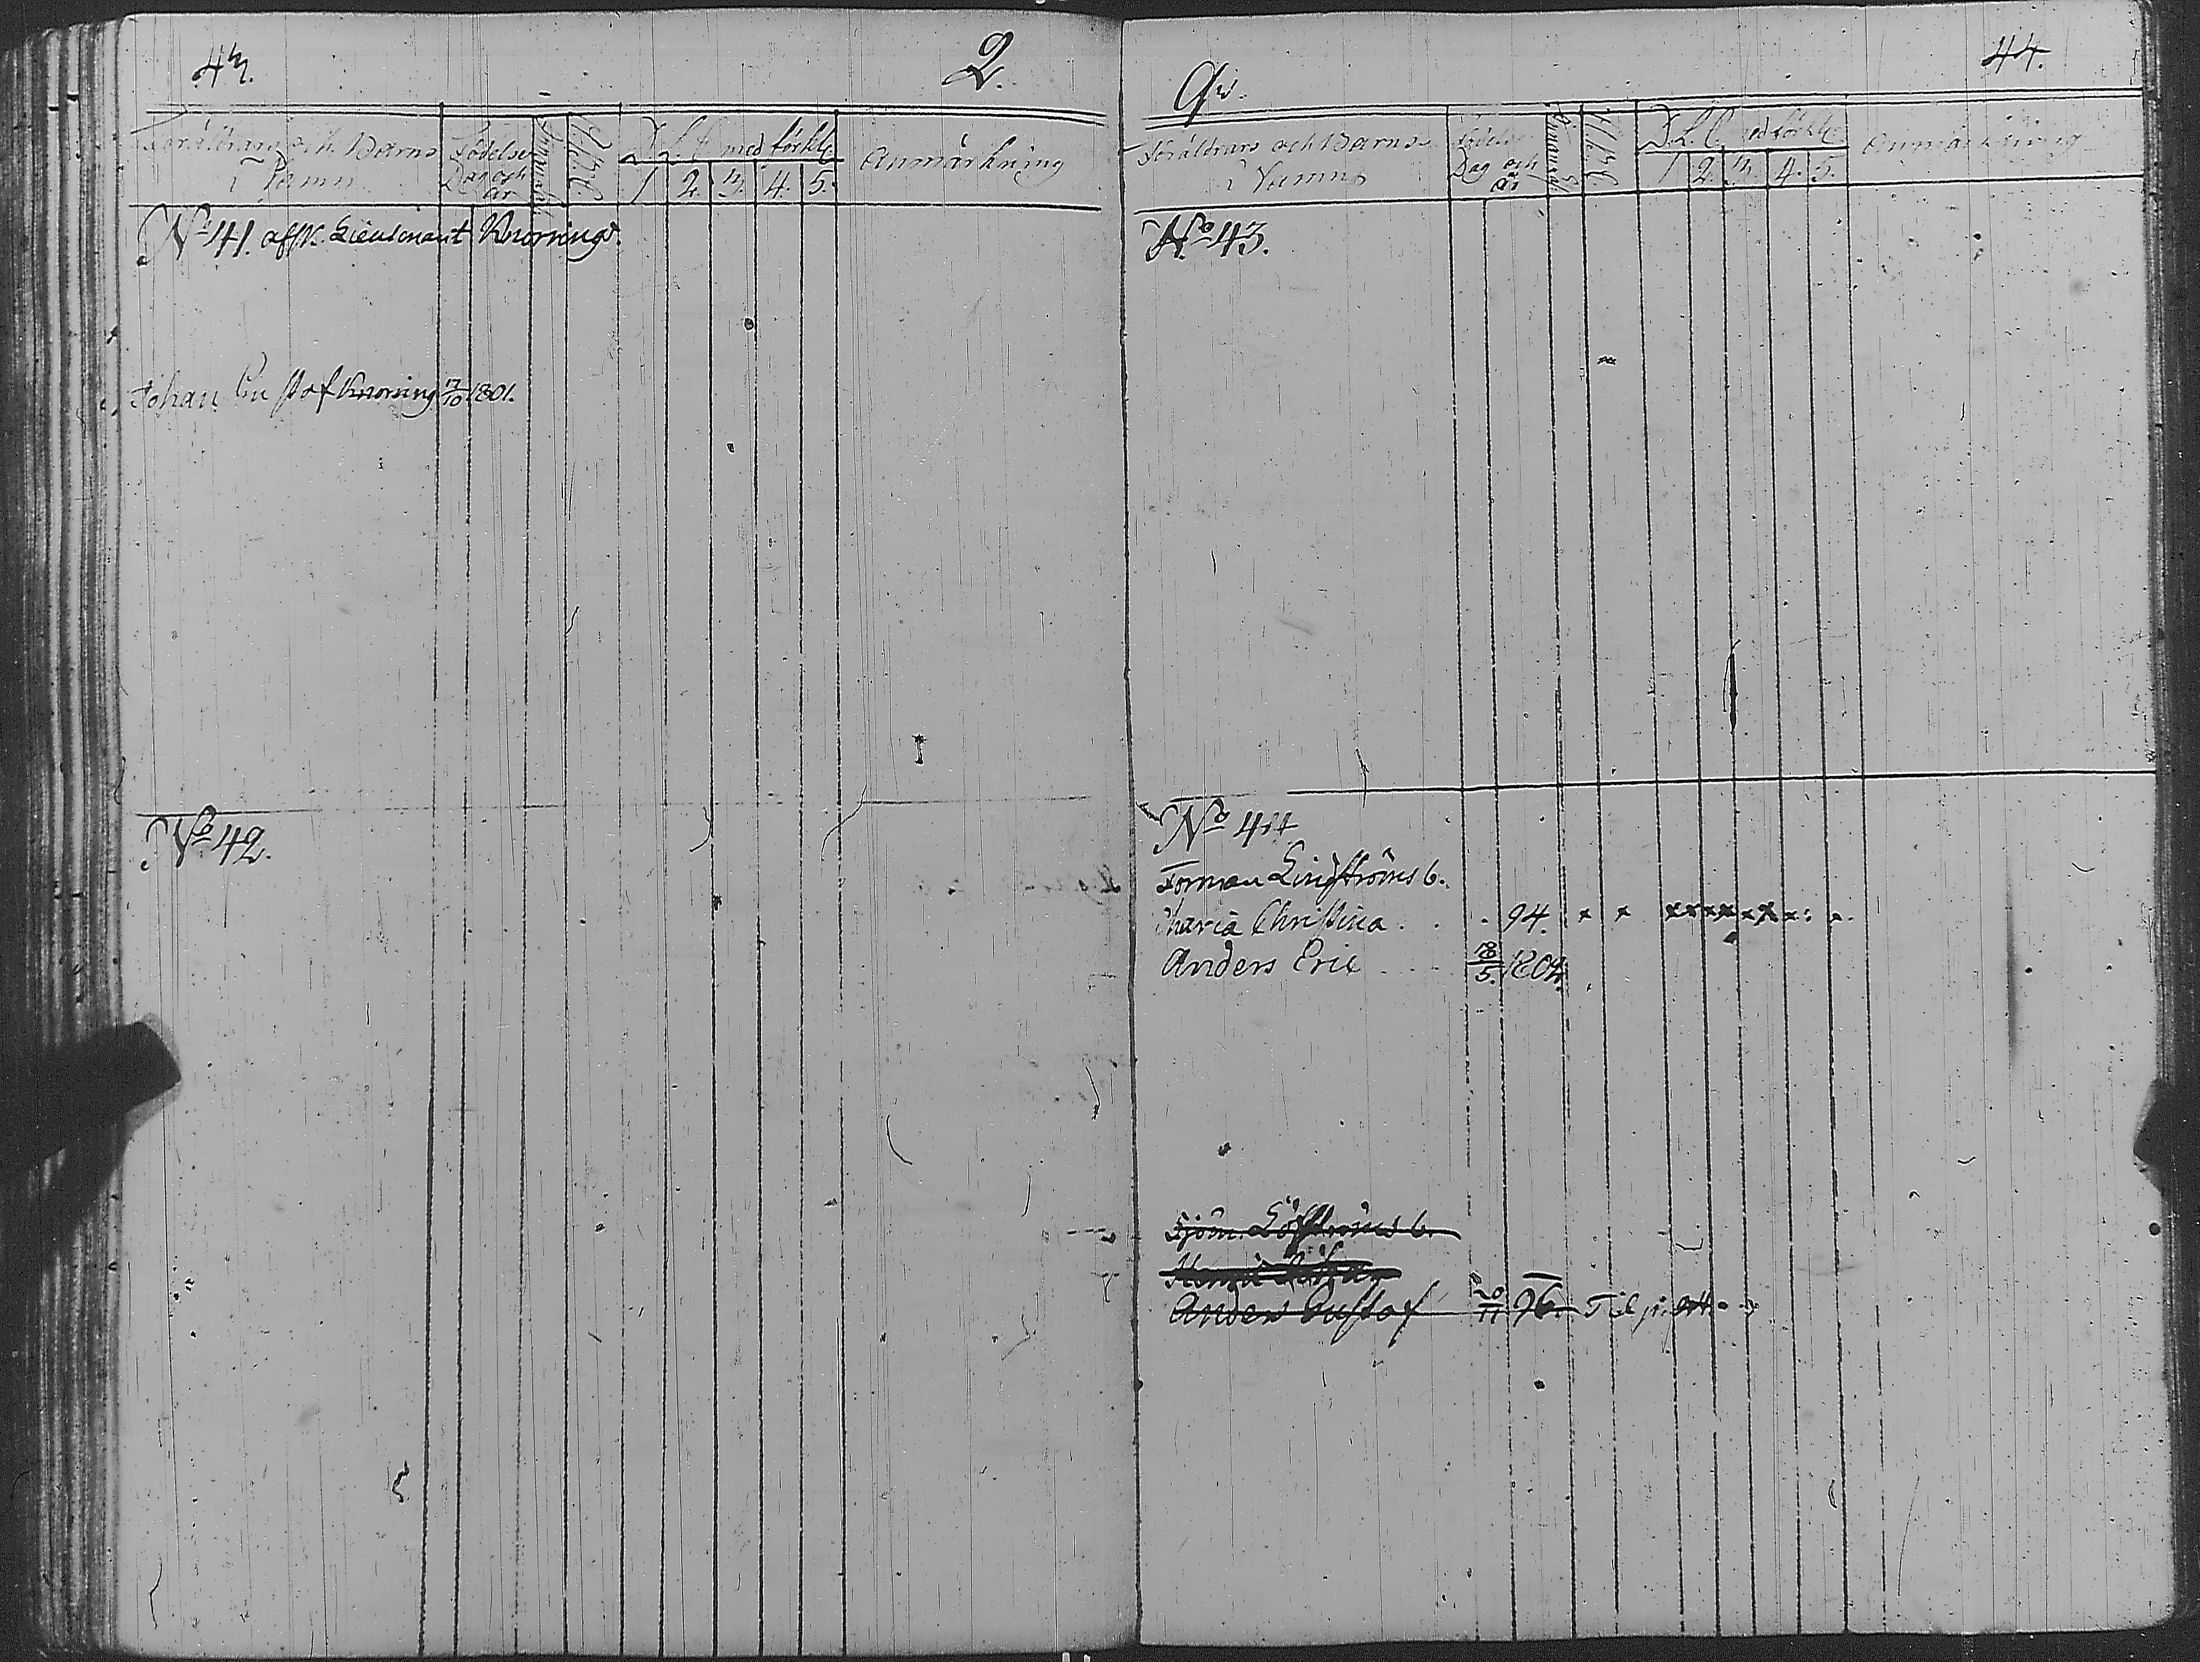 43.
2.
Föräldrars och Barns Namn
Födelse Dag och år
D. L. C. med förkl:
1 2. 3. 4. 5.
Anmärkning
No 41. afsk. Lieutenant Knorrings.
Johan Gustof Knorring 17/10 1801.
No 42.
Qv.
44.
Föräldrars och Barns Namn
Födelse Dag och år
D. L. C. med förkl:
1 2. 3. 4. 5.
Anmärkning
No 43.
No 44
Forman Lingströms b.
Maria Christina . . . 94. x x x x x x x x x x
Anders Eric 18/5. 1804.
Löfströms b.
Anders Gustof 20/11 96. Til p.